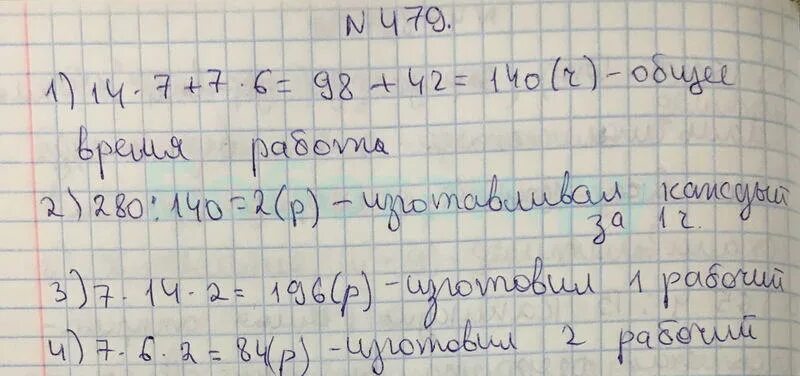 N 479.
1) 14 · 7 + 7 · 6 = 98 + 42 = 140 (ч) – общее
время работа
2) 280 : 140 = 2 (р) – изготавливал каждый
за 1 ч.
3) 7 · 14 · 2 = 196 (р) – изготовил 1 рабочий
4) 7 · 6 · 2 = 84 (р) – изготовил 2 рабочий